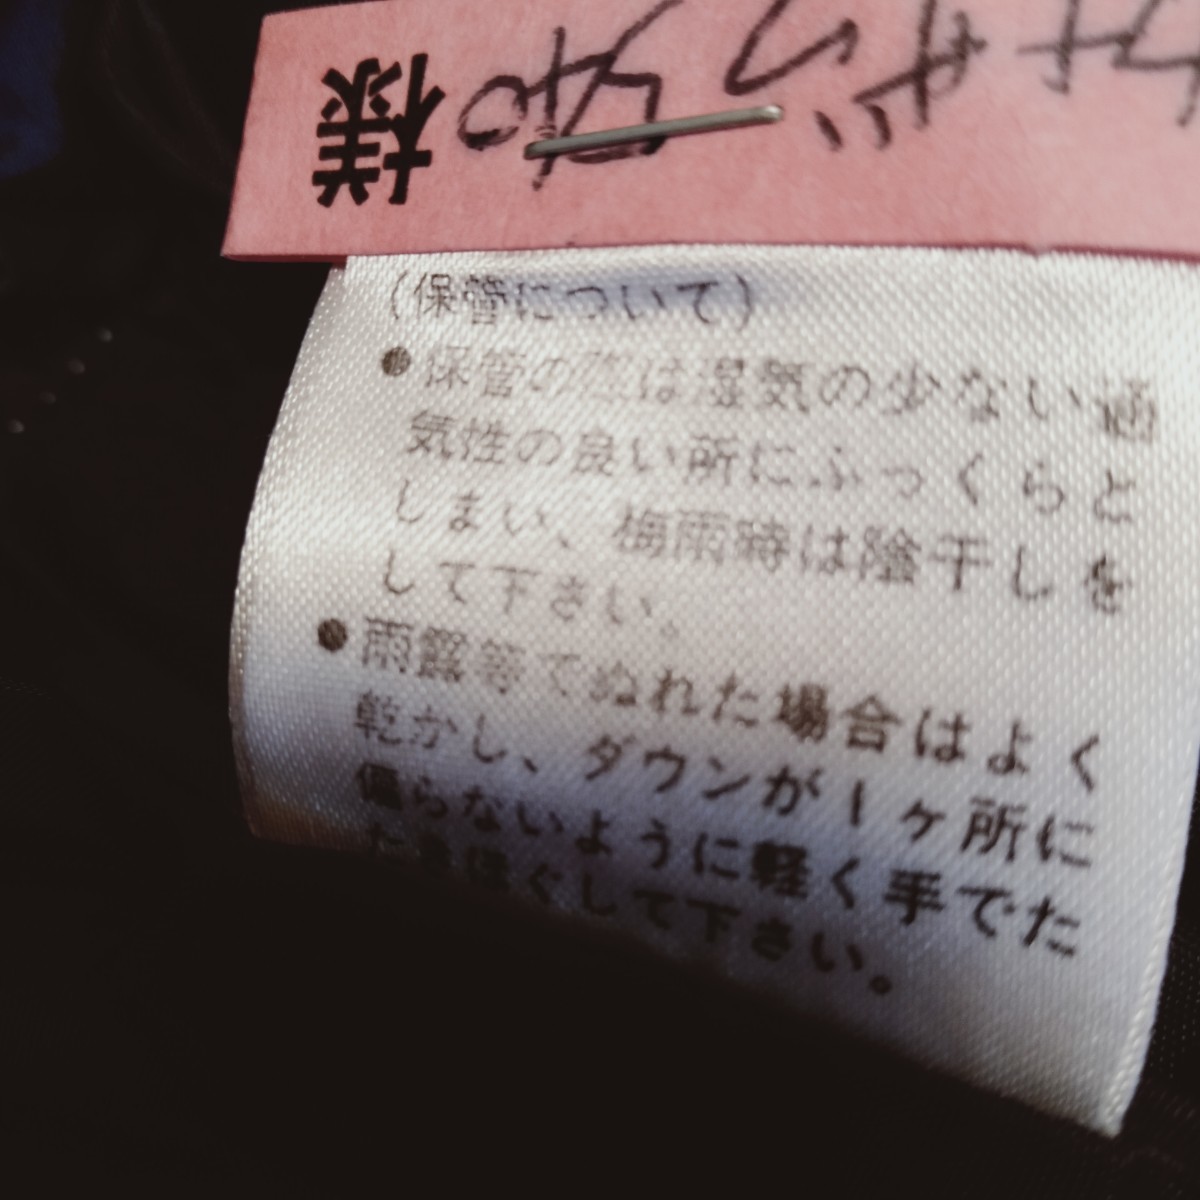 様
(保管について)
●保管の際は湿気の少ない通
気性の良い所にふっくらと
しまい、梅雨時は陰干しを
して下さい。
●雨露等でぬれた場合はよく
乾かし、ダウンが1ヶ所に
偏らないように軽く手でた
たきほぐして下さい。